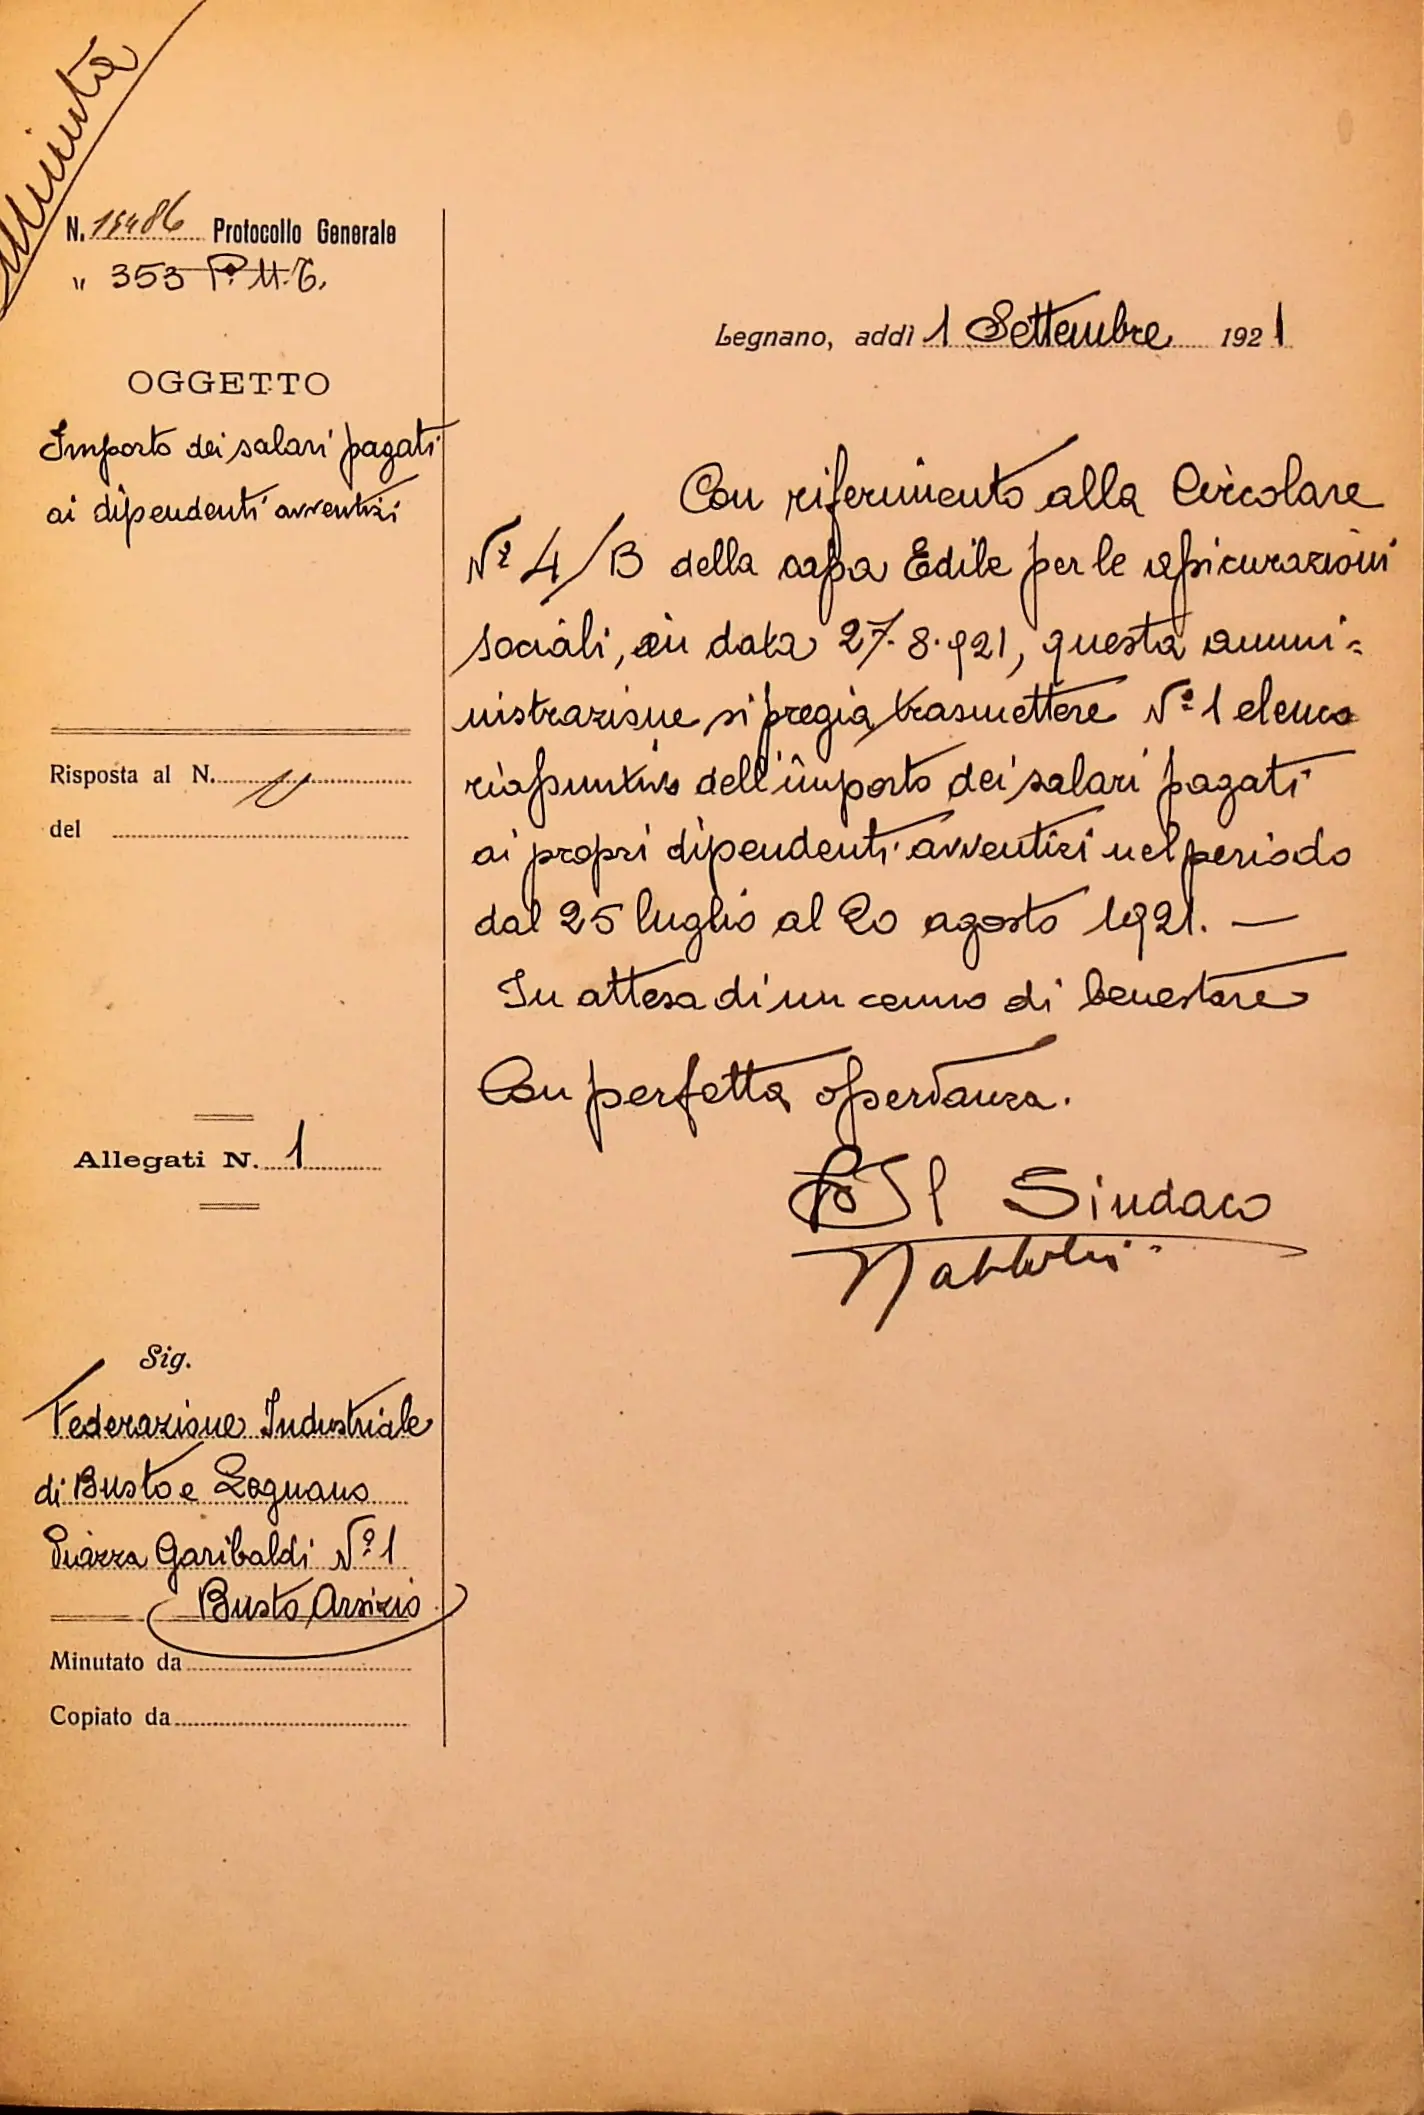 Minuta
N. 15486 Protocollo Generale
" 353 P. M. T.
OGGETTO
Importo dei salari pagati
ai dipendenti avventizi
Risposta al N.
del
Allegati N. 1
Sig.
Federazione Industriale
di Busto e Legnano
Piazza Garibaldi N.º 1
Busto Arsizio
Minutato da
Copiato da
Legnano, addì 1 Settembre 1921
Con riferimento alla Circolare
N.º 4/B della cassa Edile per le assicurazioni
sociali, in data 27.8.921, questa ammi=
nistrazione si pregia trasmettere N.º 1 elenco
riassuntivo dell'importo dei salari pagati
ai propri dipendenti avventizi nel periodo
dal 25 luglio al 20 agosto 1921. —
In attesa di un cenno di benestare
Con perfetta osservanza.
Il Sindaco